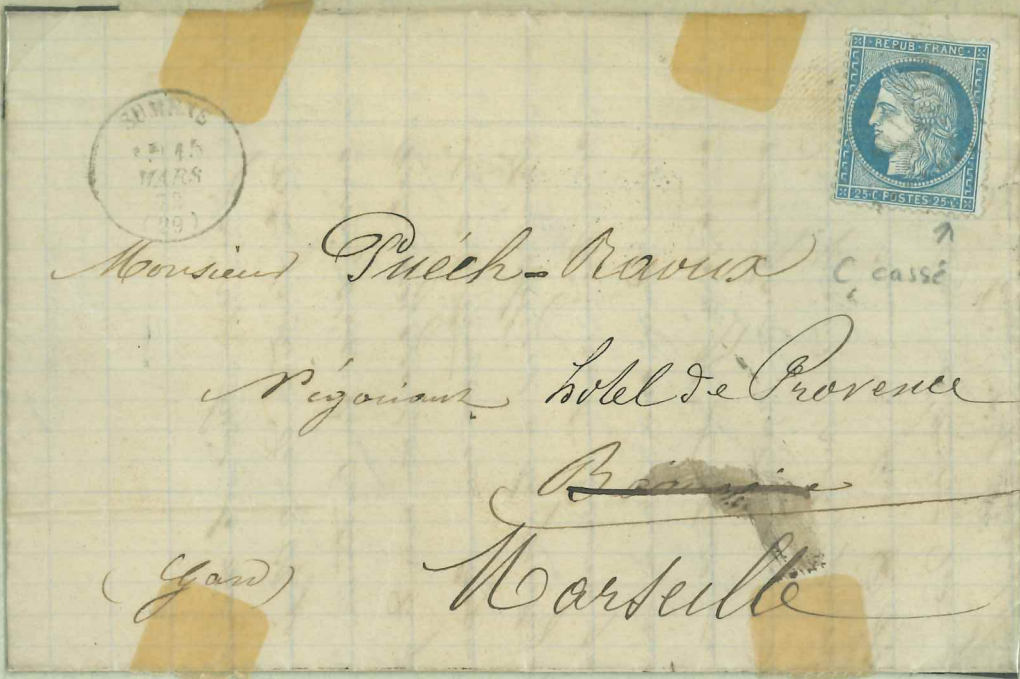 REPUB·FRANC·
25·C POSTES 25·C
SUMÈNE
15
MARS
73
(29)
C cassé
Monsieur Puéch-Ravoux
Négociant hotel de Provence
Marseille
(Gard)